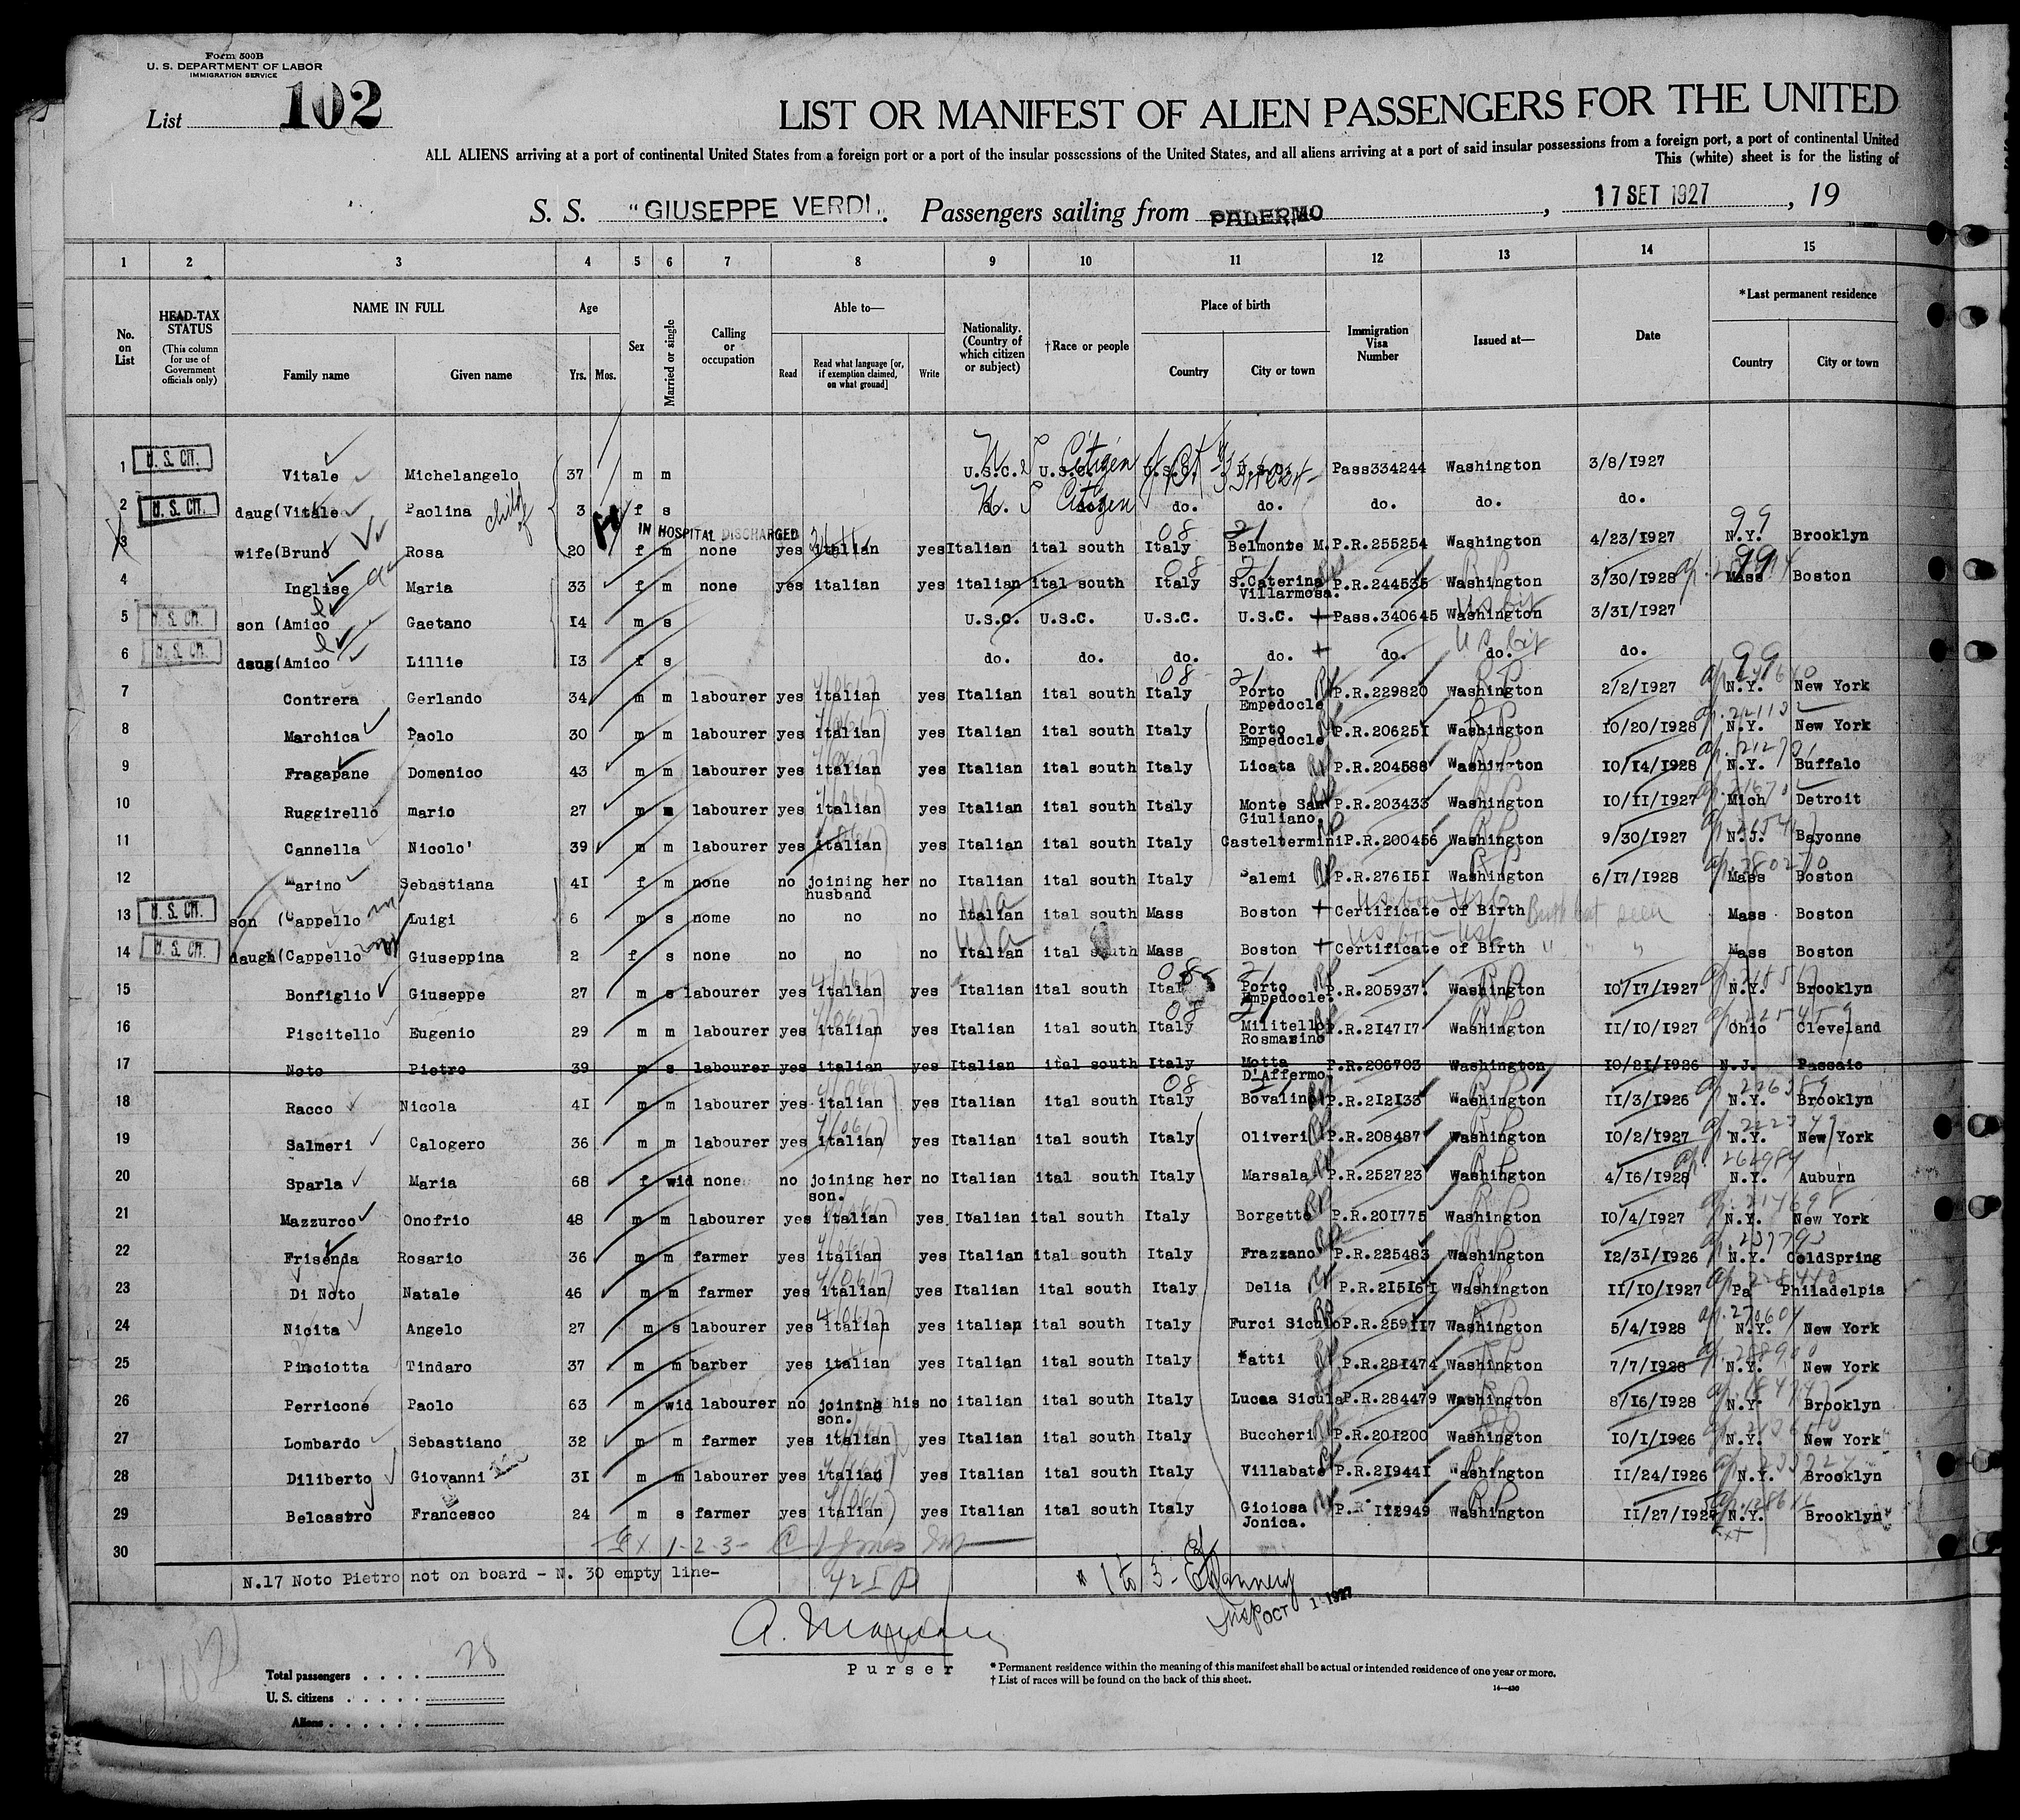 Form 500B
U. S. DEPARTMENT OF LABOR
IMMIGRATION SERVICE
List 102
LIST OR MANIFEST OF ALIEN PASSENGERS FOR THE UNITED
ALL ALIENS arriving at a port of continental United States from a foreign port or a port of the insular possessions of the United States, and all aliens arriving at a port of said insular possessions from a foreign port, a port of continental United
This (white) sheet is for the listing of
S. S. "GIUSEPPE VERDI". Passengers sailing from PALERMO, 17 SET 1927, 19
1 2 3 4 5 6 7 8 9 10 11 12 13 14 15
No. on List
HEAD-TAX STATUS (This column for use of Government officials only)
NAME IN FULL Family name Given name
Age Yrs. Mos.
Sex
Married or single
Calling or occupation
Able to— Read Read what language [or, if exemption claimed, on what ground] Write
Nationality. (Country of which citizen or subject)
†Race or people
Place of birth Country City or town
Immigration Visa Number
Issued at—
Date
*Last permanent residence Country City or town
1 U. S. CIT. Vitale Michelangelo 37 m m U.S.C. U.S.C. U.S.C. U.S.C. Pass334244 Washington 3/8/1927
U S Citizen
2 U. S. CIT. daug(Vitale Paolina child of 3 f s do. do. do. do. Washington do.
U S Citizen
IN HOSPITAL DISCHARGED
3 wife(Bruno Rosa 20 f m none yes italian yes Italian ital south Italy Belmonte M. P.R.255254 Washington 4/23/1927 N.Y. Brooklyn
4 Inglise Maria 33 f m none yes italian yes italian ital south Italy S.Caterina Villarmosa. P.R.244535 Washington 3/30/1928 Mass Boston
5 U. S. CIT. son (Amico Gaetano 14 m s U.S.C. U.S.C. U.S.C. U.S.C. Pass.340645 Washington 3/31/1927
6 U. S. CIT. daug(Amico Lillie 13 f s do. do. do. do. do. do. do.
7 Contrera Gerlando 34 m m labourer yes italian yes Italian ital south Italy Porto Empedocle P.R.229820 Washington 2/2/1927 N.Y. New York
8 Marchica Paolo 30 m m labourer yes italian yes Italian ital south Italy Porto Empedocle P.R.206251 Washington 10/20/1928 N.Y. New York
9 Fragapane Domenico 43 m m labourer yes italian yes Italian ital south Italy Licata P.R.204588 Washington 10/14/1928 N.Y. Buffalo
10 Ruggirello mario 27 m m labourer yes italian yes Italian ital south Italy Monte San Giuliano. P.R.203433 Washington 10/11/1927 Mich Detroit
11 Cannella Nicolo' 39 m m labourer yes italian yes Italian ital south Italy Casteltermini P.R.200456 Washington 9/30/1927 N.J. Bayonne
12 Marino Sebastiana 41 f m none no joining her husband no Italian ital south Italy Salemi P.R.276151 Washington 6/17/1928 Mass Boston
13 U. S. CIT. son (Cappello Luigi 6 m s nome no no no Italian ital south Mass Boston Certificate of Birth Mass Boston
14 U. S. CIT. daugh(Cappello Giuseppina 2 f s none no no no Italian ital south Mass Boston Certificate of Birth Mass Boston
15 Bonfiglio Giuseppe 27 m s labourer yes italian yes Italian ital south Ital Porto Empedocle. P.R.205937. Washington 10/17/1927 N.Y. Brooklyn
16 Piscitello Eugenio 29 m m labourer yes italian yes Italian ital south Italy Militello Rosmarino P.R.214717 Washington 11/10/1927 Ohio Cleveland
17 Noto Pietro 39 m s labourer yes italian yes Italian ital south Italy Motta D'Affermo P.R.206703 Washington 10/21/1926 N.J. Passaic
18 Racco Nicola 41 m m labourer yes italian yes Italian ital south Italy Bovalino P.R.212133 Washington 11/3/1926 N.Y. Brooklyn
19 Salmeri Calogero 36 m m labourer yes italian yes Italian ital south Italy Oliveri P.R.208487 Washington 10/2/1927 N.Y. New York
20 Sparla Maria 68 f wid none no joining her son. no Italian ital south Italy Marsala P.R.252723 Washington 4/16/1928 N.Y. Auburn
21 Mazzurco Onofrio 48 m m labourer yes italian yes. Italian ital south Italy Borgetto P.R.201775 Washington 10/4/1927 N.Y. New York
22 Frisenda Rosario 36 m m farmer yes italian yes Italian ital south Italy Frazzano P.R.225483 Washington 12/31/1926 N.Y. ColdSpring
23 Di Noto Natale 46 m m farmer yes italian yes Italian ital south Italy Delia P.R.215161 Washington 11/10/1927 Pa Philadelpia
24 Nicita Angelo 27 m s labourer yes italian yes italian ital south Italy Furci Siculo P.R.259117 Washington 5/4/1928 N.Y. New York
25 Pinciotta Tindaro 37 m m barber yes italian yes Italian ital south Italy Patti P.R.281474 Washington 7/7/1928 N.Y. New York
26 Perricone Paolo 63 m wid labourer no joining his son. no italian ital south Italy Lucca Sicula P.R.284479 Washington 8/16/1928 N.Y. Brooklyn
27 Lombardo Sebastiano 32 m m farmer yes italian yes Italian ital south Italy Buccheri P.R.201200 Washington 10/1/1926 N.Y. New York
28 Diliberto Giovanni 31 m m labourer yes italian yes Italian ital south Italy Villabate P.R.219441 Washington 11/24/1926 N.Y. Brooklyn
29 Belcastro Francesco 24 m s farmer yes italian yes Italian ital south Italy Gioiosa Jonica. P.R 112949 Washington 11/27/192 N.Y. Brooklyn
30
N.17 Noto Pietro not on board - N. 30 empty line-
OCT 1 1927
Purser
Total passengers . . . . 28
U. S. citizens . . . . .
Aliens . . . . . .
* Permanent residence within the meaning of this manifest shall be actual or intended residence of one year or more.
† List of races will be found on the back of this sheet.
14—430
102